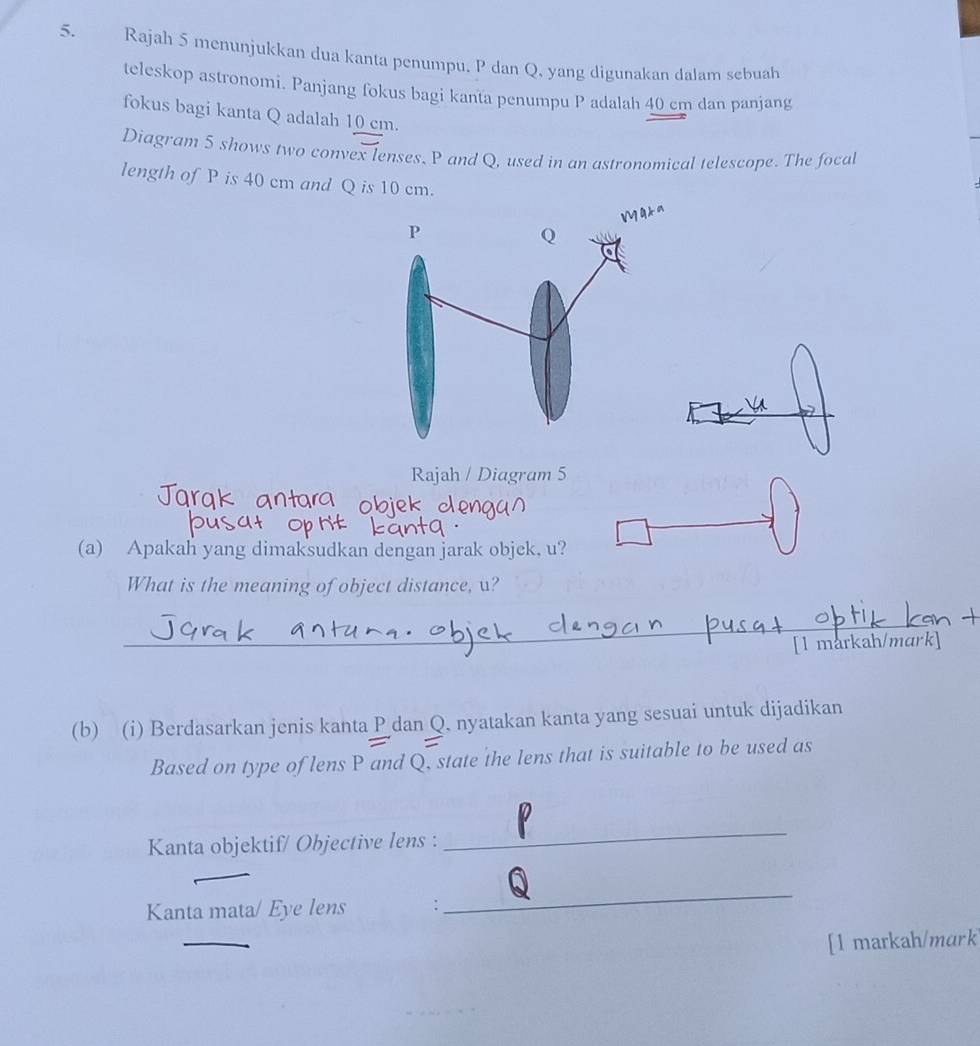 5. Rajah 5 menunjukkan dua kanta penumpu, P dan Q, yang digunakan dalam sebuah
teleskop astronomi. Panjang fokus bagi kanta penumpu P adalah 40 cm dan panjang
fokus bagi kanta Q adalah 10 cm.
Diagram 5 shows two convex lenses, P and Q, used in an astronomical telescope. The focal
length of P is 40 cm and Q is 10 cm.
mata
P Q
u
Rajah / Diagram 5
Jarak antara objek dengan
pusat optik kanta.
(a) Apakah yang dimaksudkan dengan jarak objek, u?
What is the meaning of object distance, u?
Jarak antara objek dengan pusat optik kant
[1 markah/mark]
(b) (i) Berdasarkan jenis kanta P dan Q, nyatakan kanta yang sesuai untuk dijadikan
Based on type of lens P and Q, state the lens that is suitable to be used as
Kanta objektif/ Objective lens : P
Kanta mata/ Eye lens : Q
[1 markah/mark